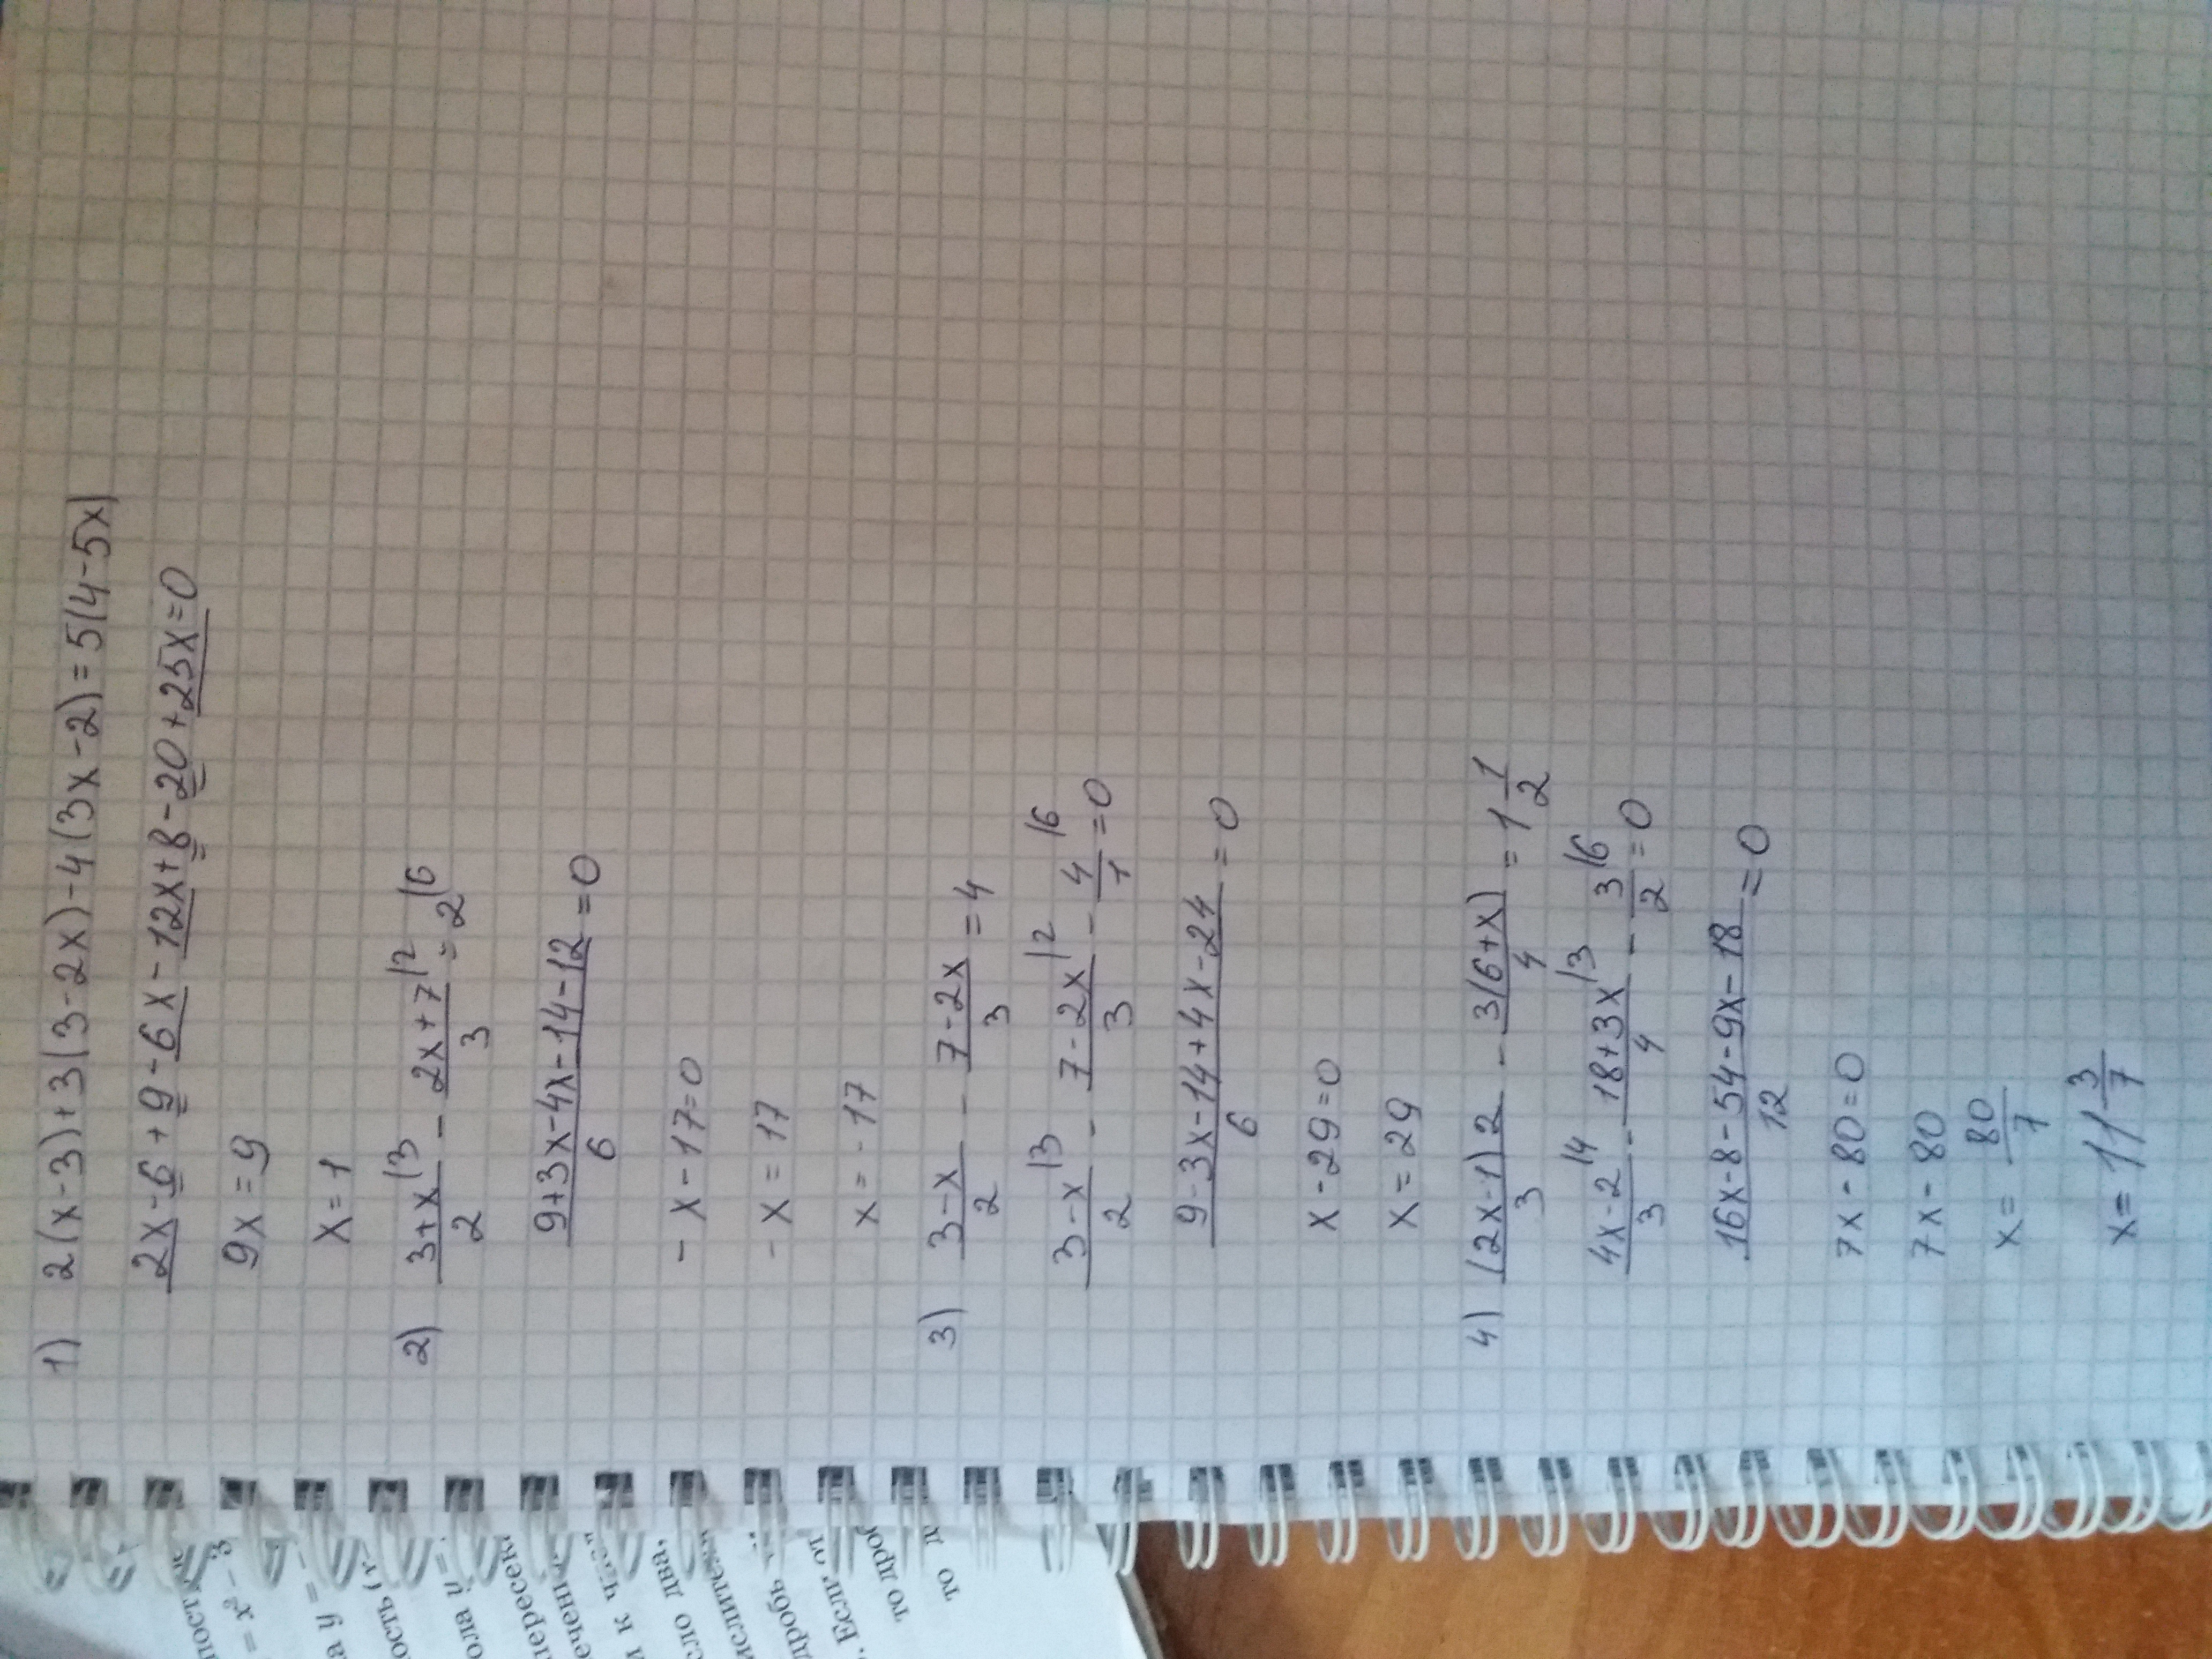 1) 2(x-3)+3(3-2x)-4(3x-2)=5(4-5x)
2x-6+9-6x-12x+8-20+25x=0
9x=9
x=1
2) (3+x)/2 |3 - (2x+7)/3 |2 = 2 |6
(9+3x-4x-14-12)/6 =0
-x-17=0
-x=17
x=-17
3) (3-x)/2 - (7-2x)/3 =4
(3-x)/2 |3 - (7-2x)/3 |2 - 4/1 |6 =0
(9-3x-14+4x-24)/6 =0
x-29=0
x=29
4) (2x-1)2/3 - 3(6+x)/4 = 1 1/2
(4x-2)/3 |4 - (18+3x)/4 |3 - 3/2 |6 =0
(16x-8-54-9x-18)/12 =0
7x-80=0
7x-80
x= 80/7
x= 11 3/7
= x² - 3
а y = -
ость (
ола y =
пересек
ечен
и к
сло два,
числител
дробь
. Если от
то дроб
то д